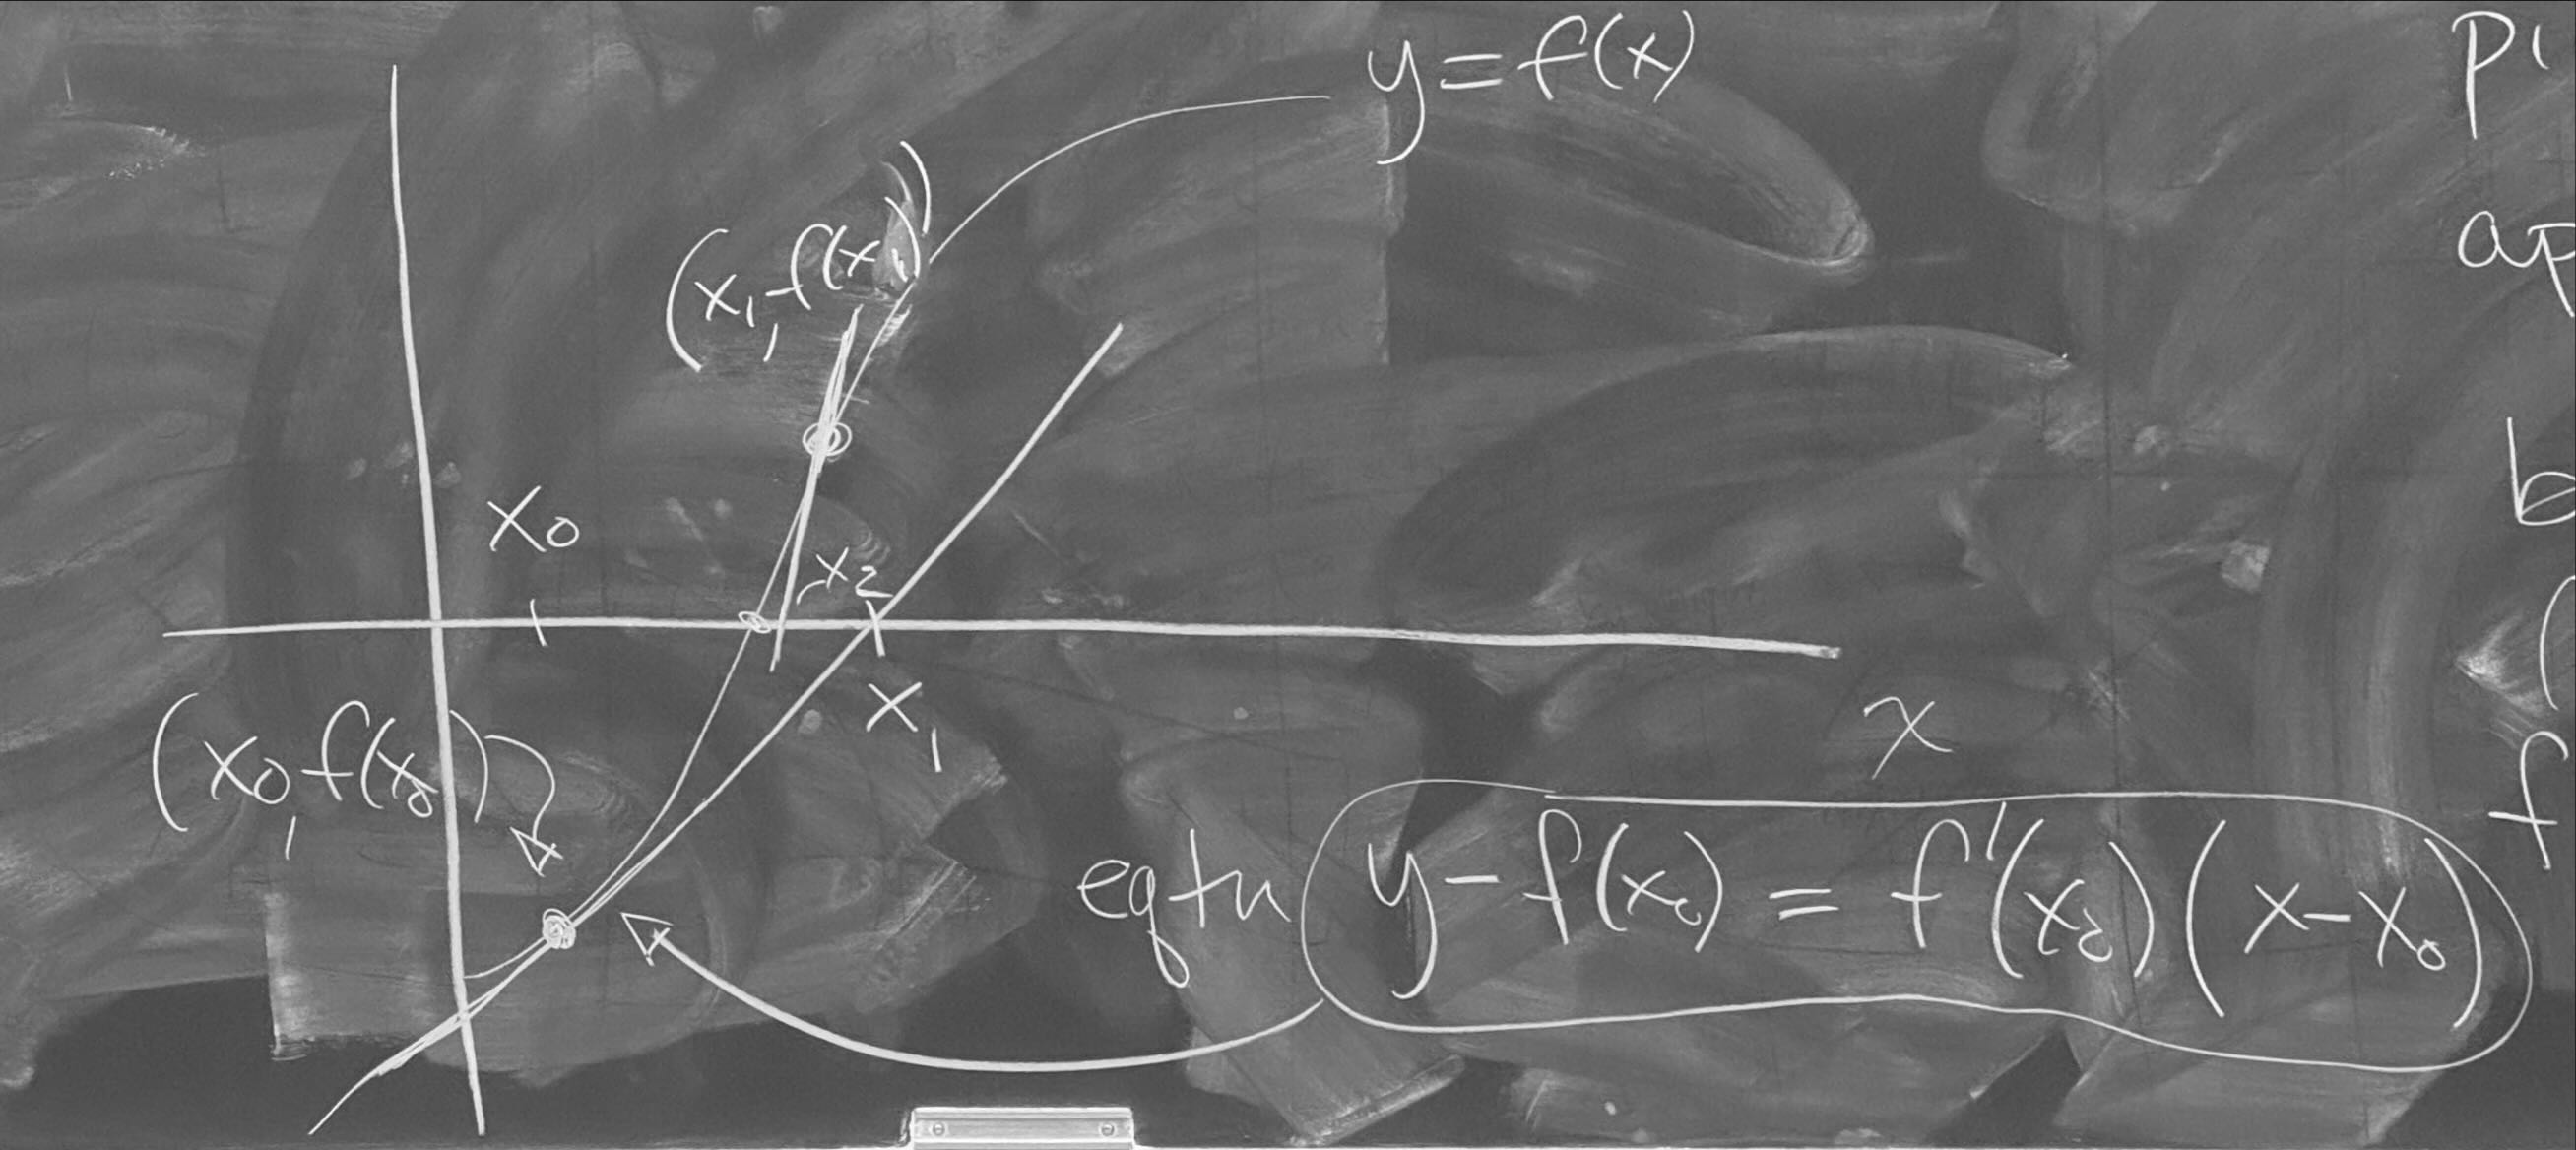 y=f(x)
(x₁, f(x₁))
x₀
x₂
x₁
x
(x₀, f(x₀))
eqtn y-f(x₀) = f'(x₀)(x-x₀)
ap
b
(
f